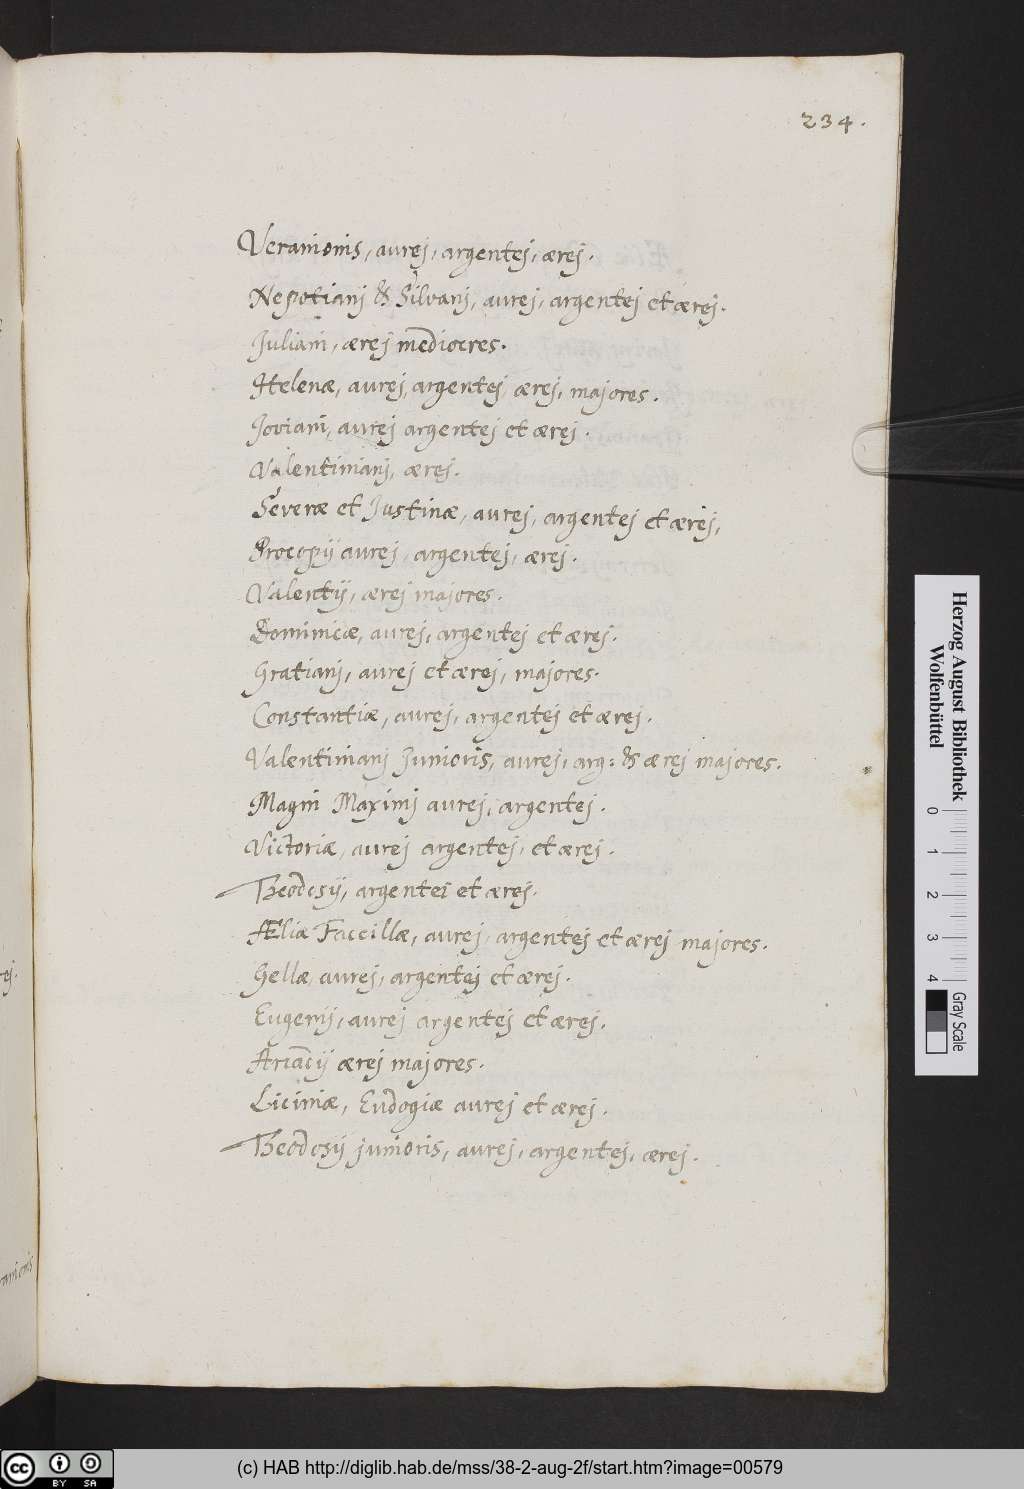 234.
Veranionis, aurej, argentej, ærej.
Nepotianj & Silvanj, aurej, argentej et ærej.
Juliani, ærej mediocres.
Helenæ, aurej, argentej ærej, majores.
Joviani, aurej argentej et ærej.
Valentinianj, ærej.
Severæ et Justinæ, aurej, argentej et ærej,
Procopij aurej, argentej, ærej.
Valentij, ærej majores.
Dominicæ, aurej, argentej et ærej.
Gratianj, aurej et ærej, majores.
Constantiæ, aurej, argentej et ærej.
Valentinianj Junioris, aurej, arg: & ærej majores.
Magni Maximj aurej, argentej.
Victoriæ, aurej argentej, et ærej.
Theodosij, argentei et ærej.
Æliæ Faccillæ, aurej, argentej et ærej majores.
Gellæ, aurej, argentej et ærej.
Eugenij, aurej argentej et ærej.
Ariadij ærej majores.
Liciniæ, Eudogiæ aurej et ærej.
Theodosij junioris, aurej, argentej, ærej.
ej.
anionis
Herzog August Bibliothek
Wolfenbüttel
0 1 2 3 4
Gray Scale
cc BY SA
(c) HAB http://diglib.hab.de/mss/38-2-aug-2f/start.htm?image=00579